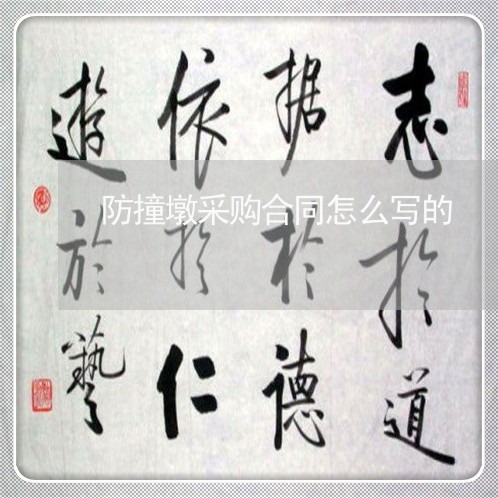 志於道
据於德
依於仁
遊於藝
防撞墩采购合同怎么写的